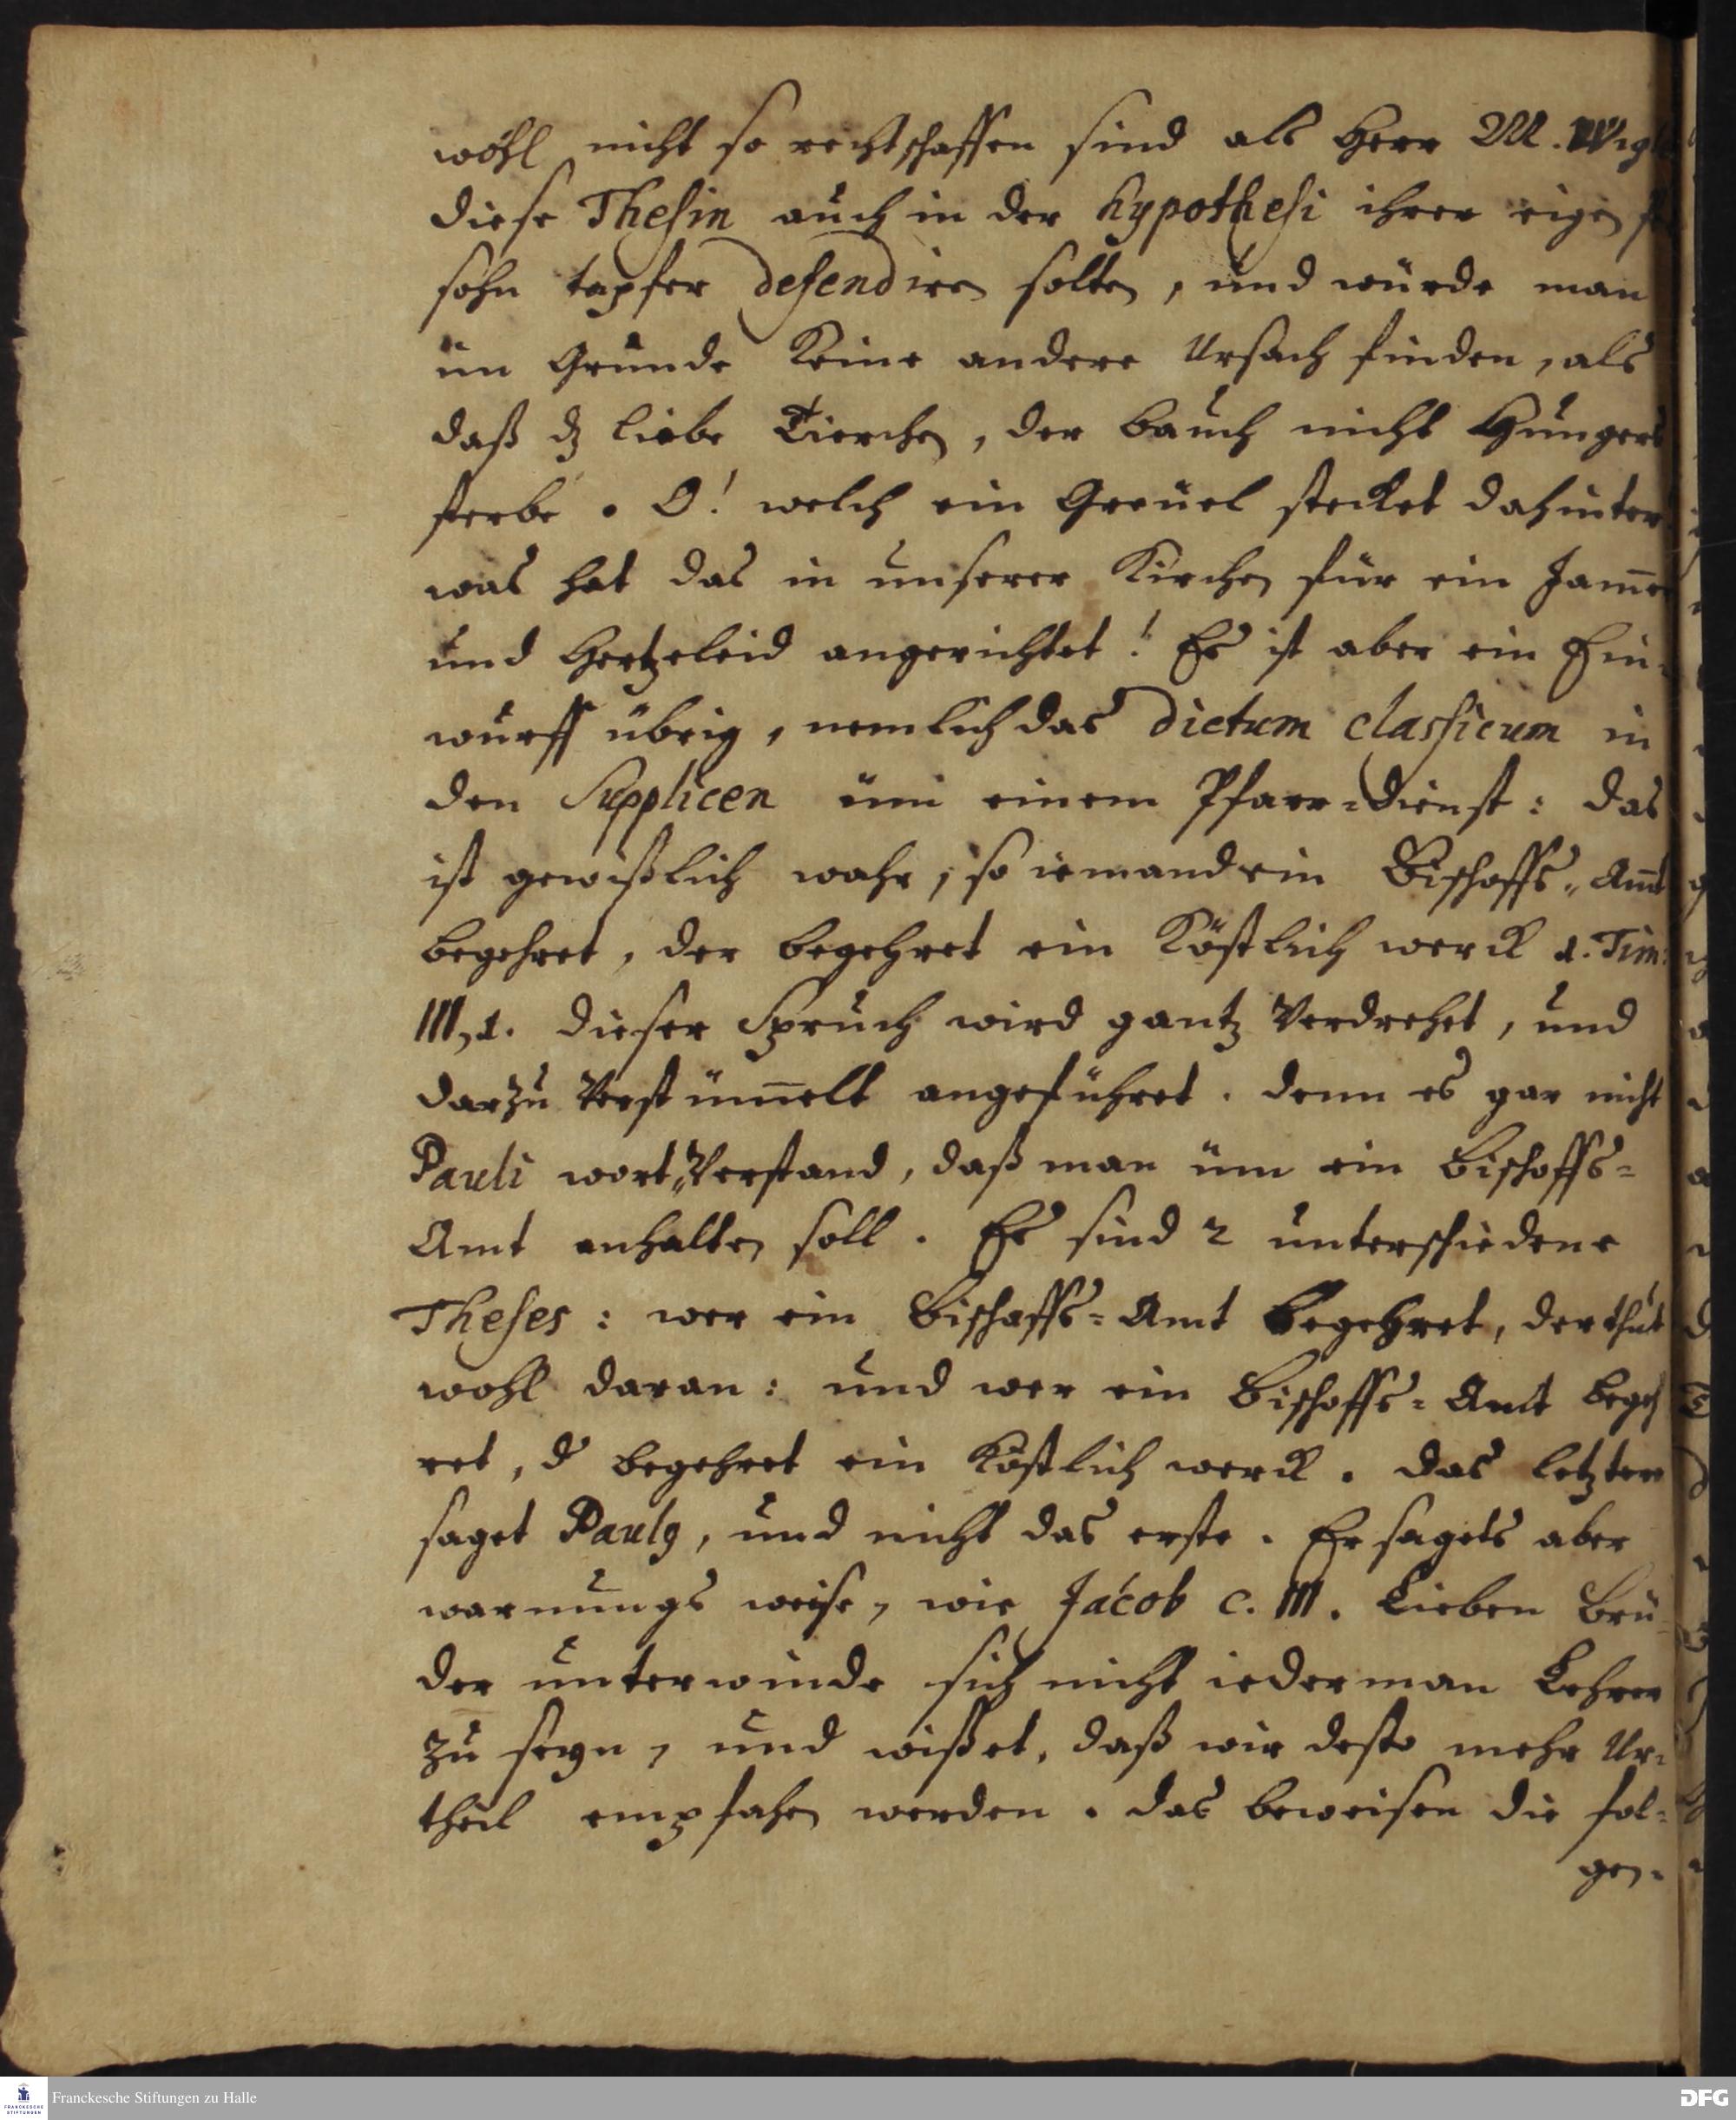 wohl nicht so rechtschaffen sind als Herr M. Wigl
diese Thesin auch in der hypothesi ihrer eigen
sohn tapfer defendiren solten, und würde man
im Grunde keine andere Ursach finden, als
daß dz liebe Tierchen, der bauch nicht Hungers
sterbe. O! welch ein Greuel stecket dahinter
was hat das in unserer Kirchen für ein Jam̅er
und Hertzeleid angerichtet! Es ist aber ein Ein-
wurff übrig, nemlich das dictum classicum in
den Supplicen üm einem Pfarr-dienst: das
ist gewißlich wahr, so iemand ein Bischoffs-Amt
begehret, der begehret ein Köstlich werck 1. Tim:
III, 1. dieser Spruch wird gantz verdrehet, und
darzu verstüm̅elt angeführet. denn es gar nicht
Pauli wort-Verstand, daß man üm ein Bischoffs-
Amt anhalten soll. Es sind 2 unterschiedene
Theses: wer ein Bischoffs-Amt begehret, der thut
wohl daran: und wer ein Bischoffs-Amt begeh
ret, d begehret ein Köstlich werck. das letztere
saget Paulg, und nicht das erste. Er sagets aber
warnungs weise, wie Jacob c. III. Lieben Brü-
der unterwinde sich nicht iederman Lehrer
zu seyn, und wißet, daß wir desto mehr Ur-
theil empfahen werden. das beweisen die fol-
gen-
Franckesche Stiftungen zu Halle
DFG
FRANCKESCHE
STIFTUNGEN